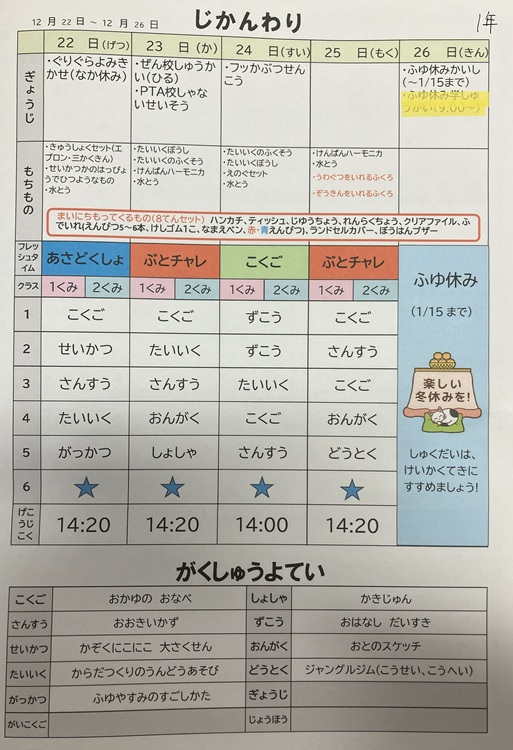 12 月 22 日 ～ 12 月 26 日
じかんわり
1年
22 日(げつ) 23 日(か) 24 日(すい) 25 日(もく) 26 日(きん)
ぎょうじ
・ぐりぐらよみき
かせ(なか休み)
・ぜん校しゅうか
い(ひる)
・PTA校しゃな
いせいそう
・フッかぶつせん
こう
・ふゆ休みかいし
(～1/15まで)
・ふゆ休み学しゅ
うかい(9:00～)
もちもの
・きゅうしょくセット(エ
プロン・三かくきん)
・せいかつかのはっぴょ
うでひつようなもの
・水とう
・たいいくぼうし
・たいいくのふくそう
・けんばんハーモニカ
・水とう
・たいいくのふくそう
・たいいくぼうし
・えのぐセット
・水とう
・けんばんハーモニカ
・水とう
・うわぐつをいれるふくろ
・ぞうきんをいれるふくろ
まいにちもってくるもの(8てんセット) ハンカチ、ティッシュ、じゆうちょう、れんらくちょう、クリアファイル、ふ
でいれ(えんぴつ5～6本、けしゴム1こ、なまえペン、赤・青えんぴつ)、ランドセルカバー、ぼうはんブザー
フレッ
シュタ
イム
あさどくしょ ぷとチャレ こくご ぷとチャレ
クラス 1くみ 2くみ 1くみ 2くみ 1くみ 2くみ 1くみ 2くみ
1 こくご こくご ずこう こくご
2 せいかつ たいいく ずこう さんすう
3 さんすう さんすう たいいく こくご
4 たいいく おんがく こくご おんがく
5 がっかつ しょしゃ さんすう どうとく
6
げこ
うじ
こく
14:20 14:20 14:00 14:20
ふゆ休み
(1/15 まで)
楽しい
冬休みを!
しゅくだいは、
けいかくてきに
すすめましょう!
がくしゅうよてい
こくご おかゆの おなべ しょしゃ かきじゅん
さんすう おおきいかず ずこう おはなし だいすき
せいかつ かぞくにこにこ 大さくせん おんがく おとのスケッチ
たいいく からだつくりのうんどうあそび どうとく ジャングルジム(こうせい、こうへい)
がっかつ ふゆやすみのすごしかた ぎょうじ
がいこくご じょうほう